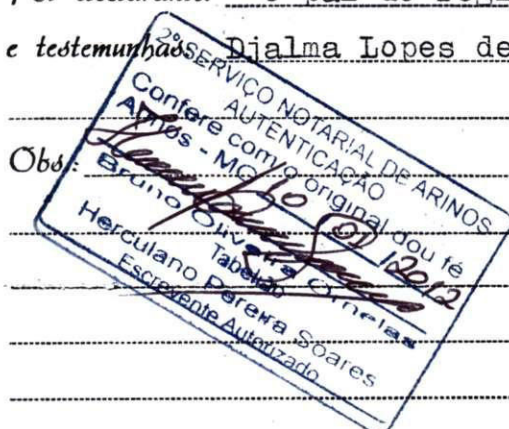 o pai do regi
e testemunhas: Djalma Lopes de
Obs.:
2º SERVIÇO NOTARIAL DE ARINOS
AUTENTICAÇÃO
Confere com o original dou fé
Arinos - MG 10 01 2012
Bruno Oliveira Ornelas
Tabelião
Herculano Pereira Soares
Escrevente Autorizado